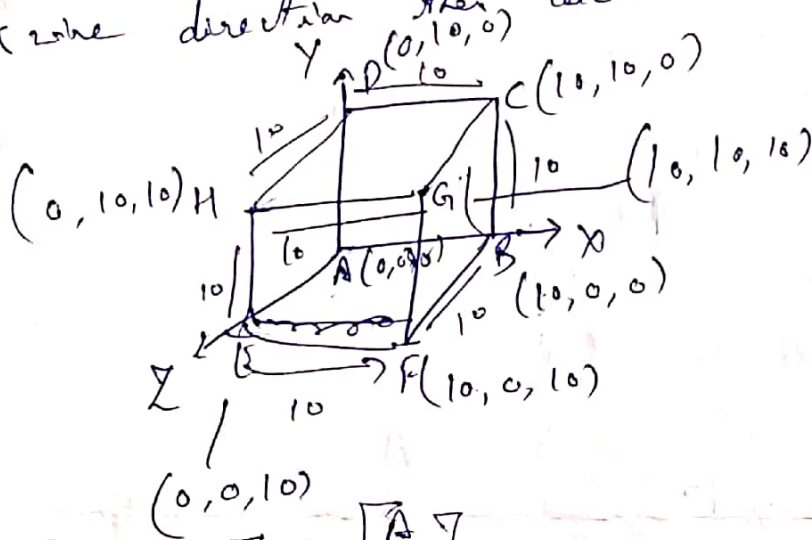 direction then
Y D(0,10,0)
10
C(10,10,0)
10
10
(10,10,10)
(0,10,10)H
G
10
A(0,0,0)
B
X
10
10
(10,0,0)
Z
E
F(10,0,10)
10
(0,0,10)
A